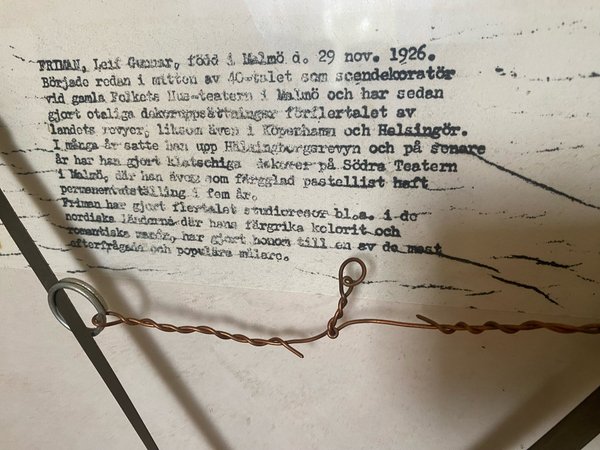 FRIMAN, Leif Gunnar, född i Malmö d. 29 nov. 1926.
Började redan i mitten av 40-talet som scendekoratör
vid gamla Folkets Hus-teatern i Malmö och har sedan
gjort otaliga dekoruppsättningar förflertalet av
landets revyer, liksom även i Köpenhamn och Helsingör.
I många år satte han upp Hälsingborgsrevyn och på senare
år har han gjort klatschiga dekorer på Södra Teatern
i Malmö, där han även som färgglad pastellist haft
permanentutställing i fem år.
Friman har gjort flertalet studioresor bl.a. i de
nordiska länderna där hans färgrika kolorit och
romantiska manér, har gjort honom till en av de mest
efterfrågade och populära målare.